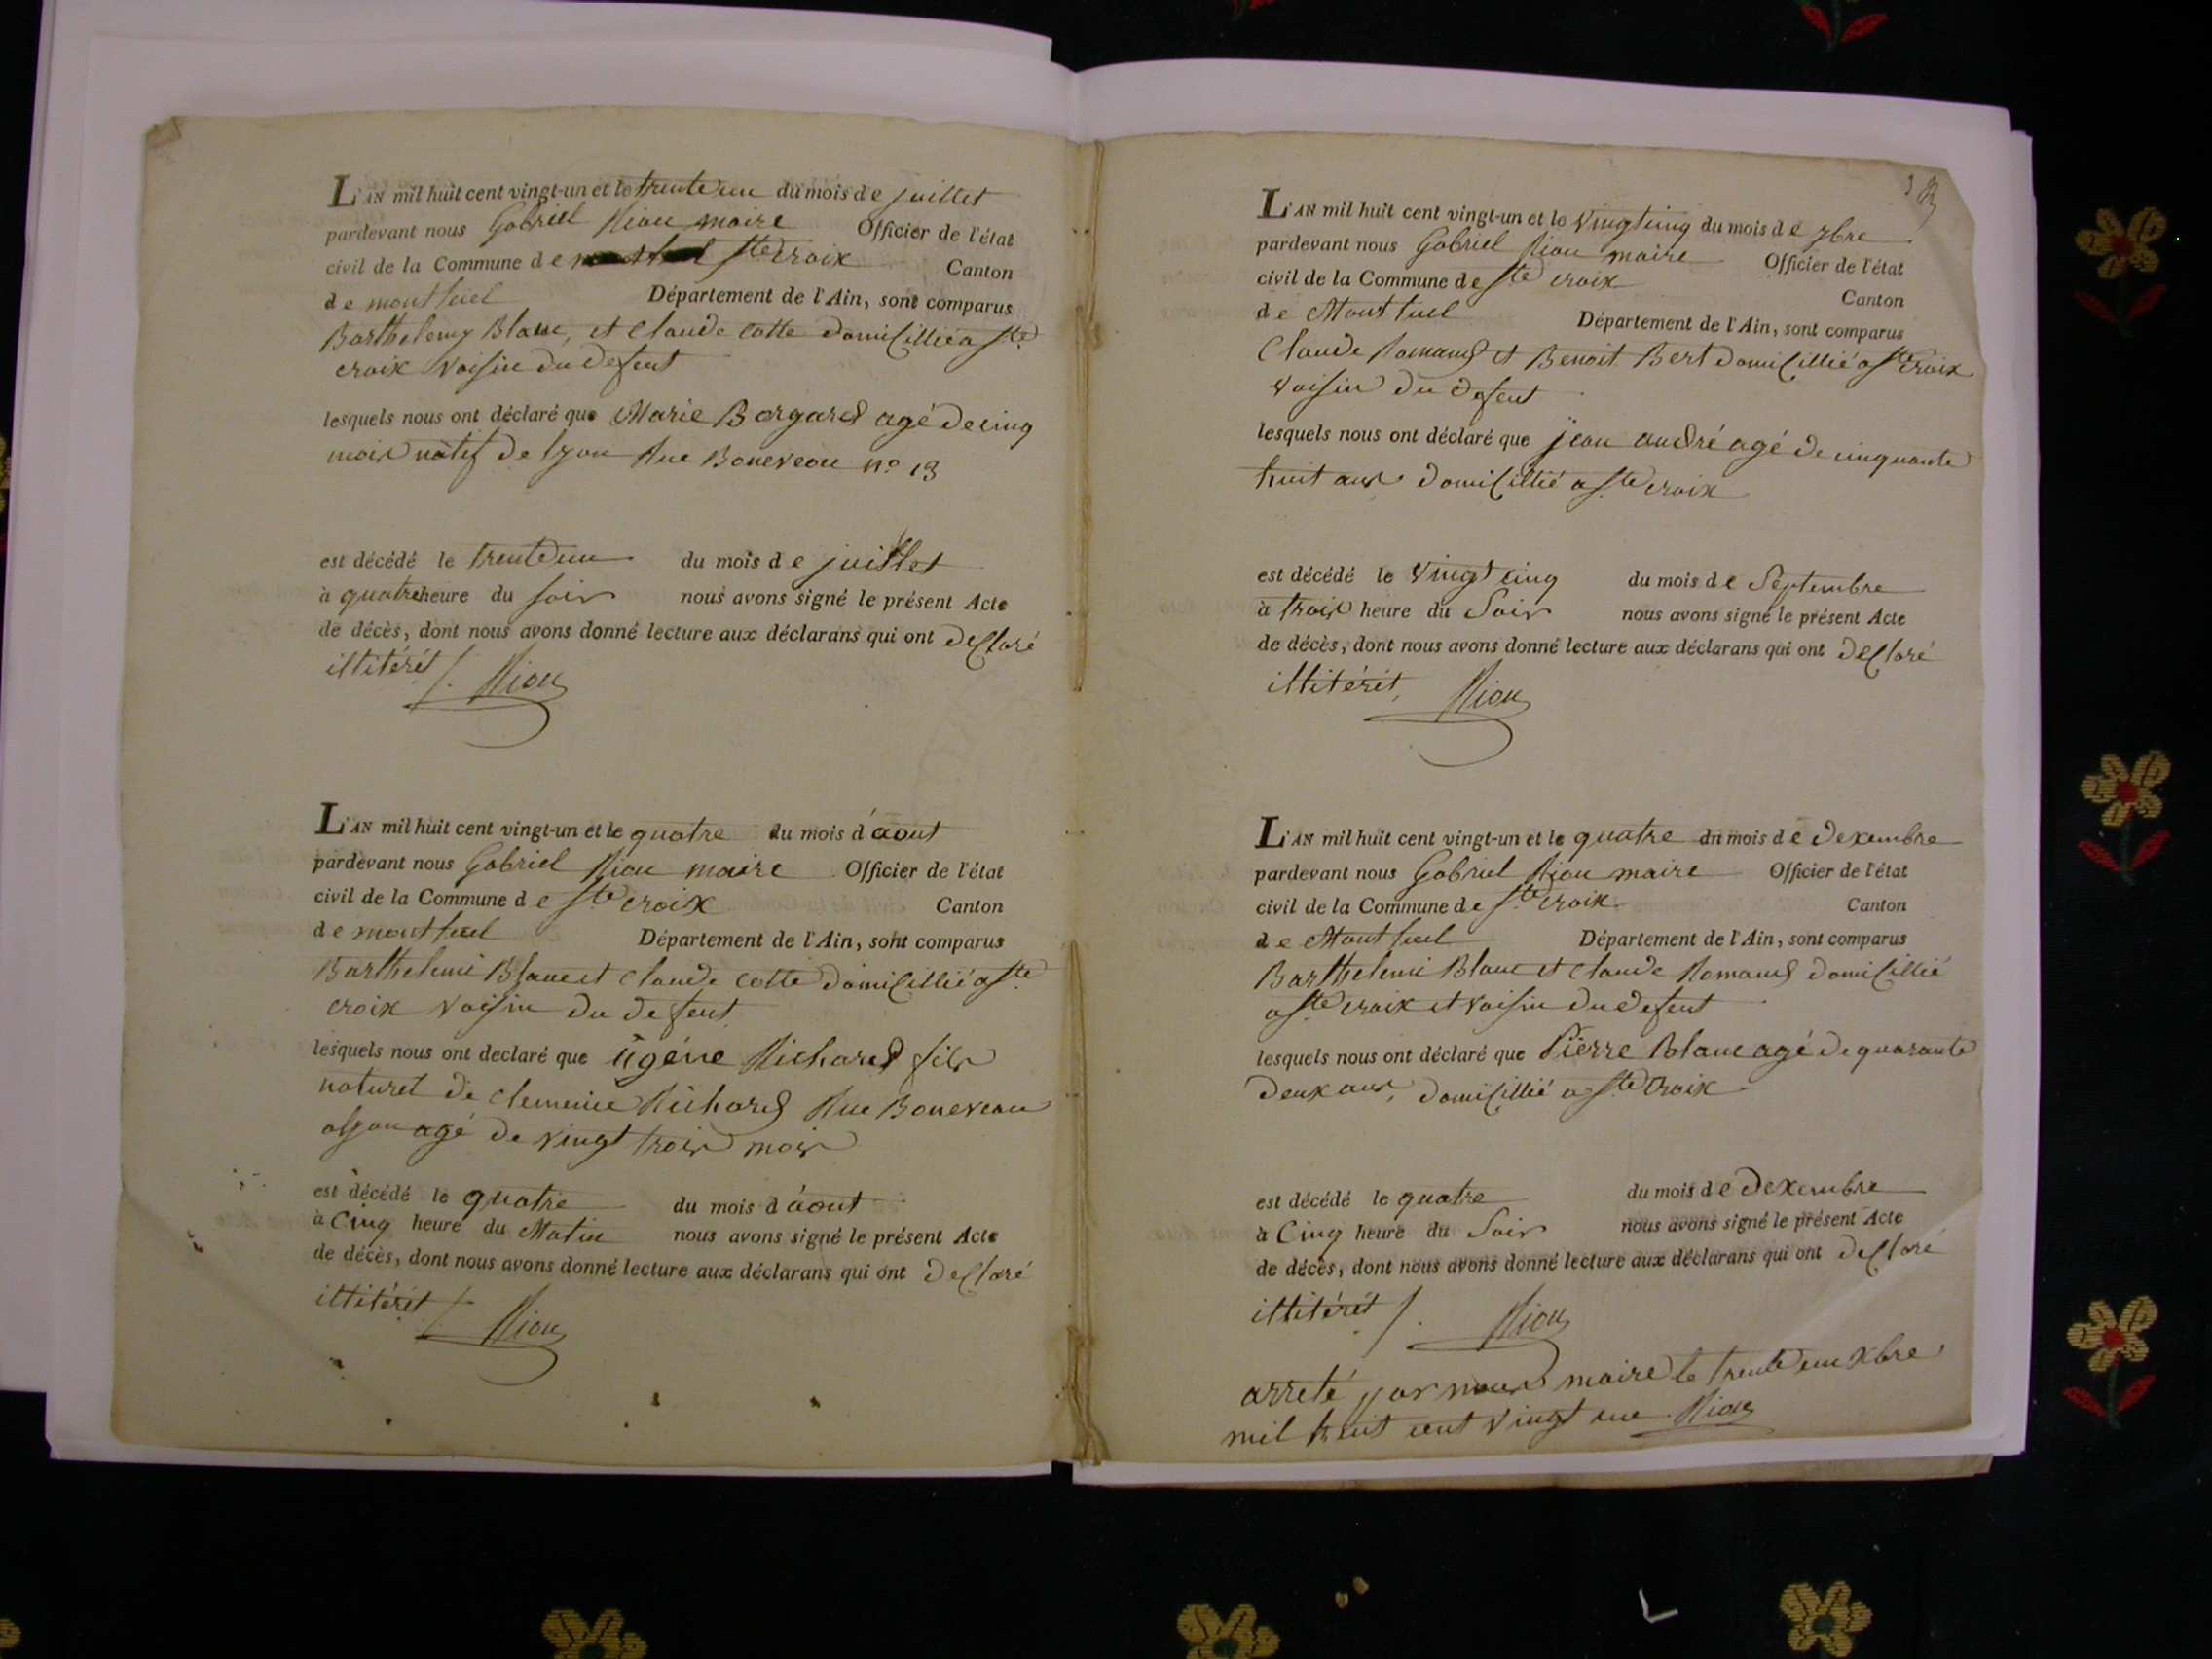 L'AN mil huit cent vingt-un et le trente un du mois de juillet
pardevant nous Gabriel Riou maire Officier de l'état
civil de la Commune de Ste croix Canton
de montluel Département de l'Ain, sont comparus
Barthelemy Blanc, et Claude Cotte domicillié a Ste
croix voisin du defunt
lesquels nous ont déclaré que Marie Borgard agé de cinq
mois natif de lyon Rue Boneveau n.o 13
est décédé le trente un du mois de juillet
à quatre heure du soir nous avons signé le présent Acte
de décès, dont nous avons donné lecture aux déclarans qui ont declaré
illitérét /. Riou
L'AN mil huit cent vingt-un et le quatre du mois d'áout
pardevant nous Gabriel Riou maire Officier de l'état
civil de la Commune de Ste croix Canton
de montluel Département de l'Ain, sont comparus
Barthelemi Blanc et Claude Cotte domicillié a Ste
croix voisin du defunt
lesquels nous ont declaré que ugéne Richard fils
naturel de Clemence Richard Rue Boneveau
a lyon agé de vingt trois mois
est décédé le quatre du mois d'áout
à Cinq heure du Matin nous avons signé le présent Acte
de décès, dont nous avons donné lecture aux déclarans qui ont declaré
illitérét /. Riou
L'AN mil huit cent vingt-un et le vingt cinq du mois de 7bre
pardevant nous Gabriel Riou maire Officier de l'état
civil de la Commune de Ste croix
Canton
de Montluel Département de l'Ain, sont comparus
Claude Romand et Benoit Bert domicillié a Ste Croix
voisin du defunt
lesquels nous ont déclaré que jean andré agé de cinquante
huit ans domicillié a Ste croix
est décédé le vingt cinq du mois de Septembre
à trois heure du Soir nous avons signé le présent Acte
de décès, dont nous avons donné lecture aux déclarans qui ont declaré
illitérét, Riou
L'AN mil huit cent vingt-un et le quatre du mois de dexembre
pardevant nous Gabriel Riou maire Officier de l'état
civil de la Commune de Ste Croix Canton
de Montluel Département de l'Ain, sont comparus
Barthelemi Blanc et Claude Romand domicillié
a Ste croix et voisin du defunt
lesquels nous ont déclaré que Pierre Blanc agé de quarante
deux ans, domicillié a Ste Croix
est décédé le quatre du mois de dexembre
à Cinq heure du Soir nous avons signé le présent Acte
de décès, dont nous avons donné lecture aux déclarans qui ont declaré
illitérét /. Riou
arreté par nous maire le trente un Xbre
mil huit cent vingt un Riou